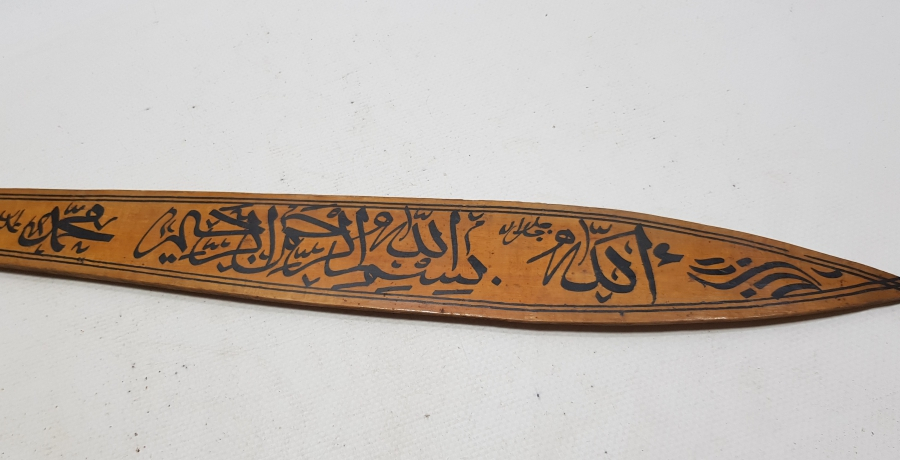 الله جل جلاله
بسم الله الرحمن الرحيم
محمد